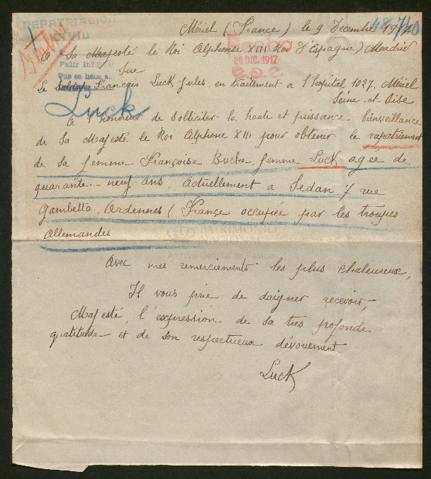 Mériel (France) le 9 Décembre 1917
REPATRIACION
A Sa Majesté le Roi Alphonse XIII Roi d'Espagne) Madrid
DIC. 1917
Le Soldat Français Luck Jules, en traitement à l'hôpital 1027, Mériel
Seine et Oise
Luck
a l'honneur de solliciter la haute et puissance bienveillance
de Sa Majesté le Roi Alphone XIII pour obtenir le rapatriement
de sa femme Françoise femme Luck agee de
quarante-neuf ans, actuellement a Sedan 7 rue
Gambetta, Ardennes (France occupée par les troupes
allemandes
Avec mes remerciements les plus chaleureuse,
Il vous prie de daigner recevoir,
Majesté, l'expression de sa tres profonde
gratitude et de son respectueux dévouement
Luck